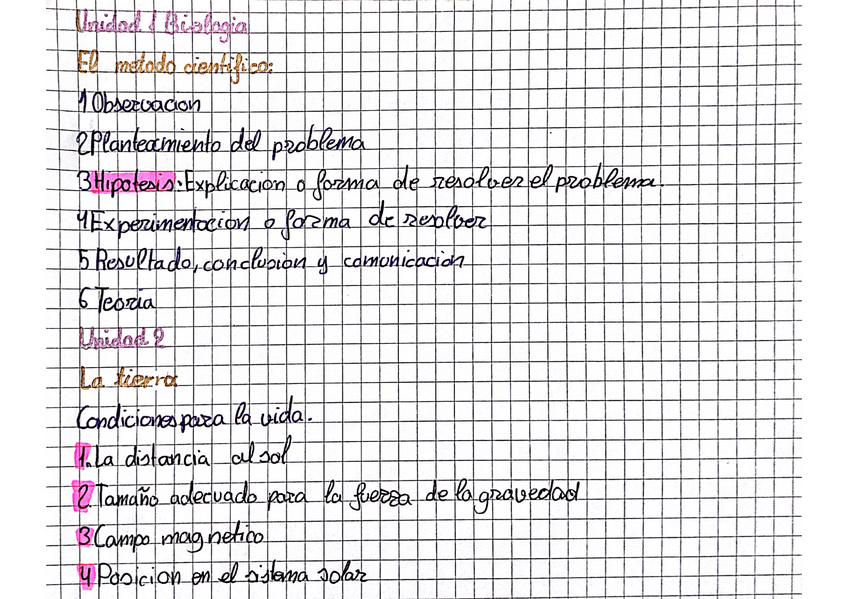 Unidad 1 Biologia
El metodo cientifico:
1 Observacion
2 Planteamiento del problema
3 Hipotesis: Explicacion o forma de resolver el problema.
4 Experimentacion o forma de resolver
5 Resultado, conclusion y comunicacion
6 Teoria
Unidad 2
La tierra
Condiciones para la vida.
1. La distancia al sol
2. Tamaño adecuado para la fuerza de la gravedad
3 Campo magnetico
4 Posicion en el sistema solar